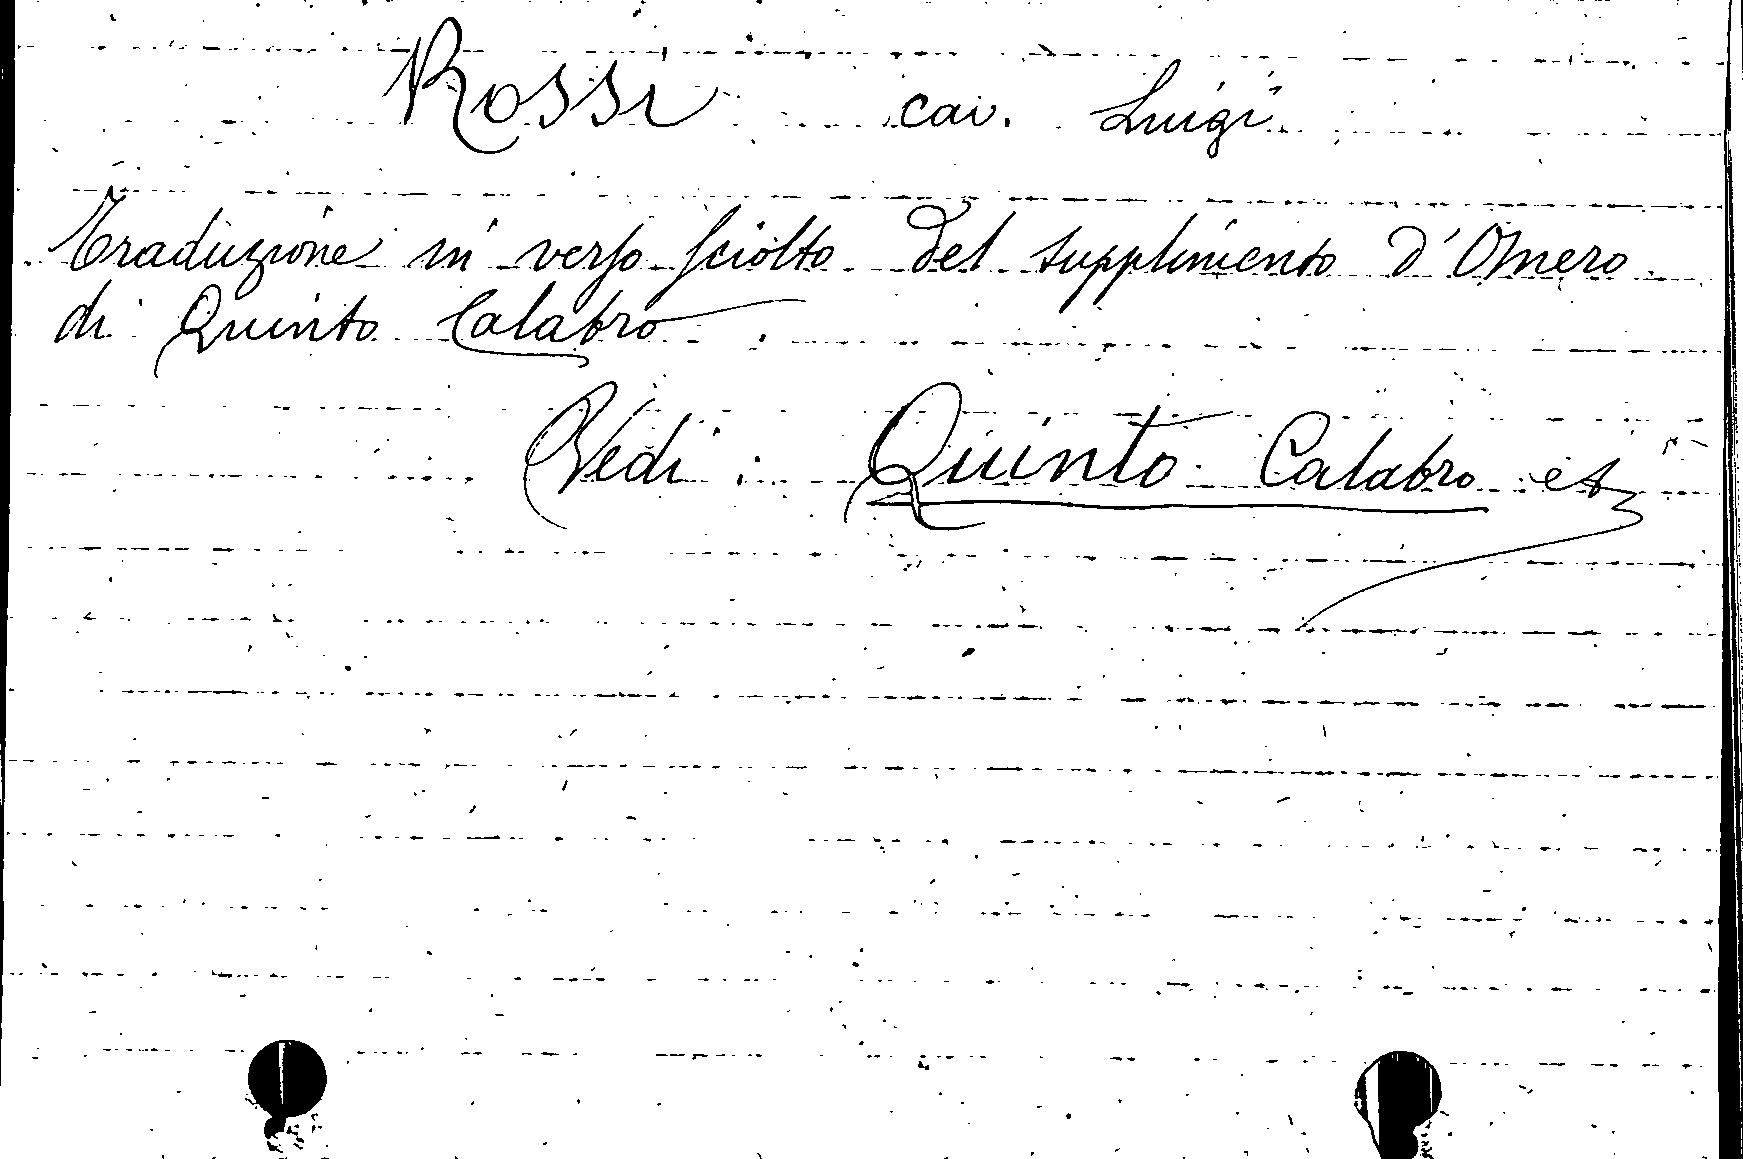 Rossi cav. Luigi
Traduzione in verso sciolto del supplimento d'Omero
di Quinto Calabro
Vedi: Quinto Calabro